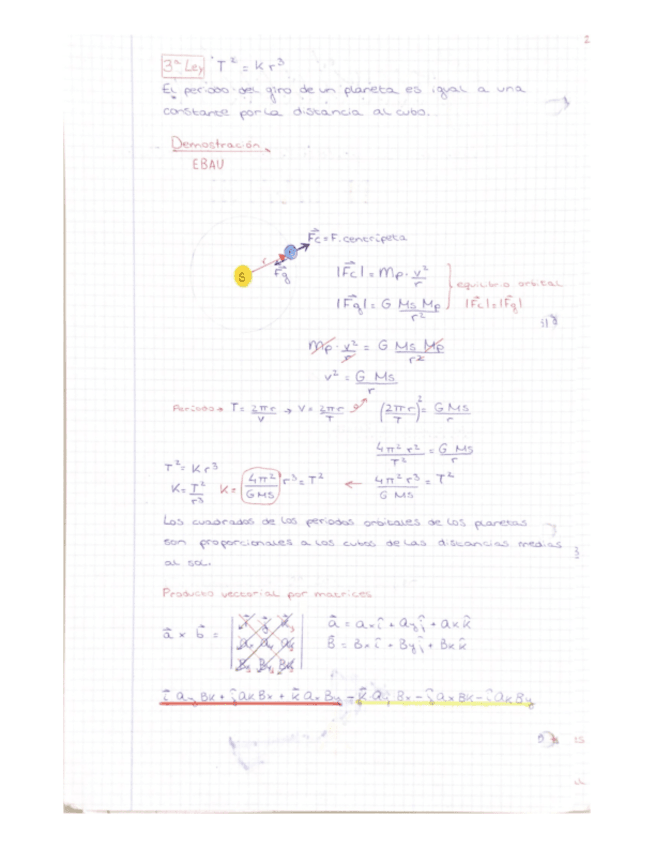 3ª Ley T² = K r³
El periodo del giro de un planeta es igual a una
constante por la distancia al cubo.
Demostración
EBAU
F⃗c = F. centrípeta
r
S
F⃗g
|F⃗c| = Mp · v²/r
|F⃗g| = G Ms Mp/r²
equilibrio orbital
|F⃗c| = |F⃗g|
Mp · v²/r = G Ms Mp/r²
v² = G Ms/r
Periodo → T = 2πr/v → v = 2πr/T (2πr/T)² = G Ms/r
4π² r²/T² = G Ms/r
T² = K r³
K = T²/r³ K = 4π²/G Ms r³ = T² ← 4π² r³/G Ms = T²
Los cuadrados de los periodos orbitales de los planetas
son proporcionales a los cubos de las distancias medias
al sol.
Producto vectorial por matrices
a⃗ x b⃗ =
a⃗ = ax i⃗ + ay j⃗ + ak k⃗
B⃗ = Bx i⃗ + By j⃗ + Bk k⃗
i⃗ ay Bk + j⃗ ak Bx + k⃗ ax By - k⃗ ay Bx - j⃗ ax Bk - i⃗ ak By